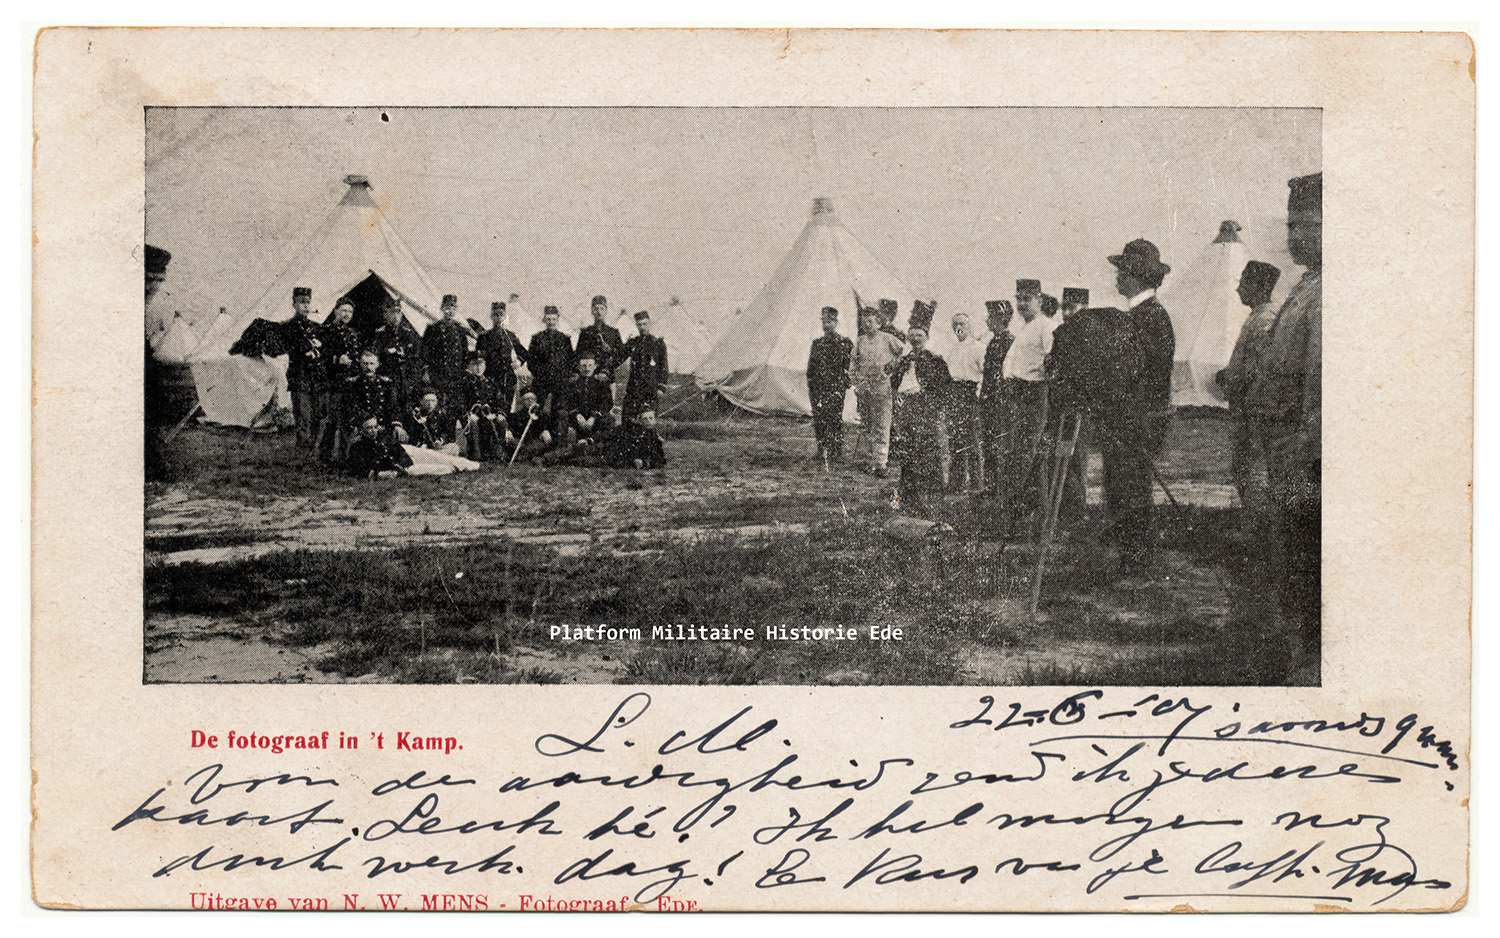 Platform Militaire Historie Ede
De fotograaf in 't Kamp.
L. M.
22-6-'07 's avonds 9
Voor de aardigheid zend ik je deze
kaart. Leuk hé? Ik heb morgen nog
druk werk. dag! Een kus van je
Uitgave van N. W. MENS - Fotograaf - EDE.